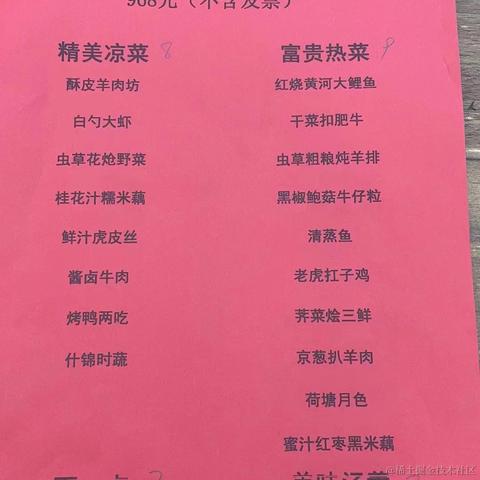 968元（不含发票）
精美凉菜 8
酥皮羊肉坊
白勺大虾
虫草花炝野菜
桂花汁糯米藕
鲜汁虎皮丝
酱卤牛肉
烤鸭两吃
什锦时蔬
富贵热菜 9
红烧黄河大鲤鱼
干菜扣肥牛
虫草粗粮炖羊排
黑椒鲍菇牛仔粒
清蒸鱼
老虎扛子鸡
荠菜烩三鲜
京葱扒羊肉
荷塘月色
蜜汁红枣黑米藕
@稀土掘金技术社区